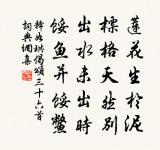 蓮花生於泥
標格天然別
出水未出時
餒魚并餒鱉
釋如珙偈頌三十六首
詞典網集